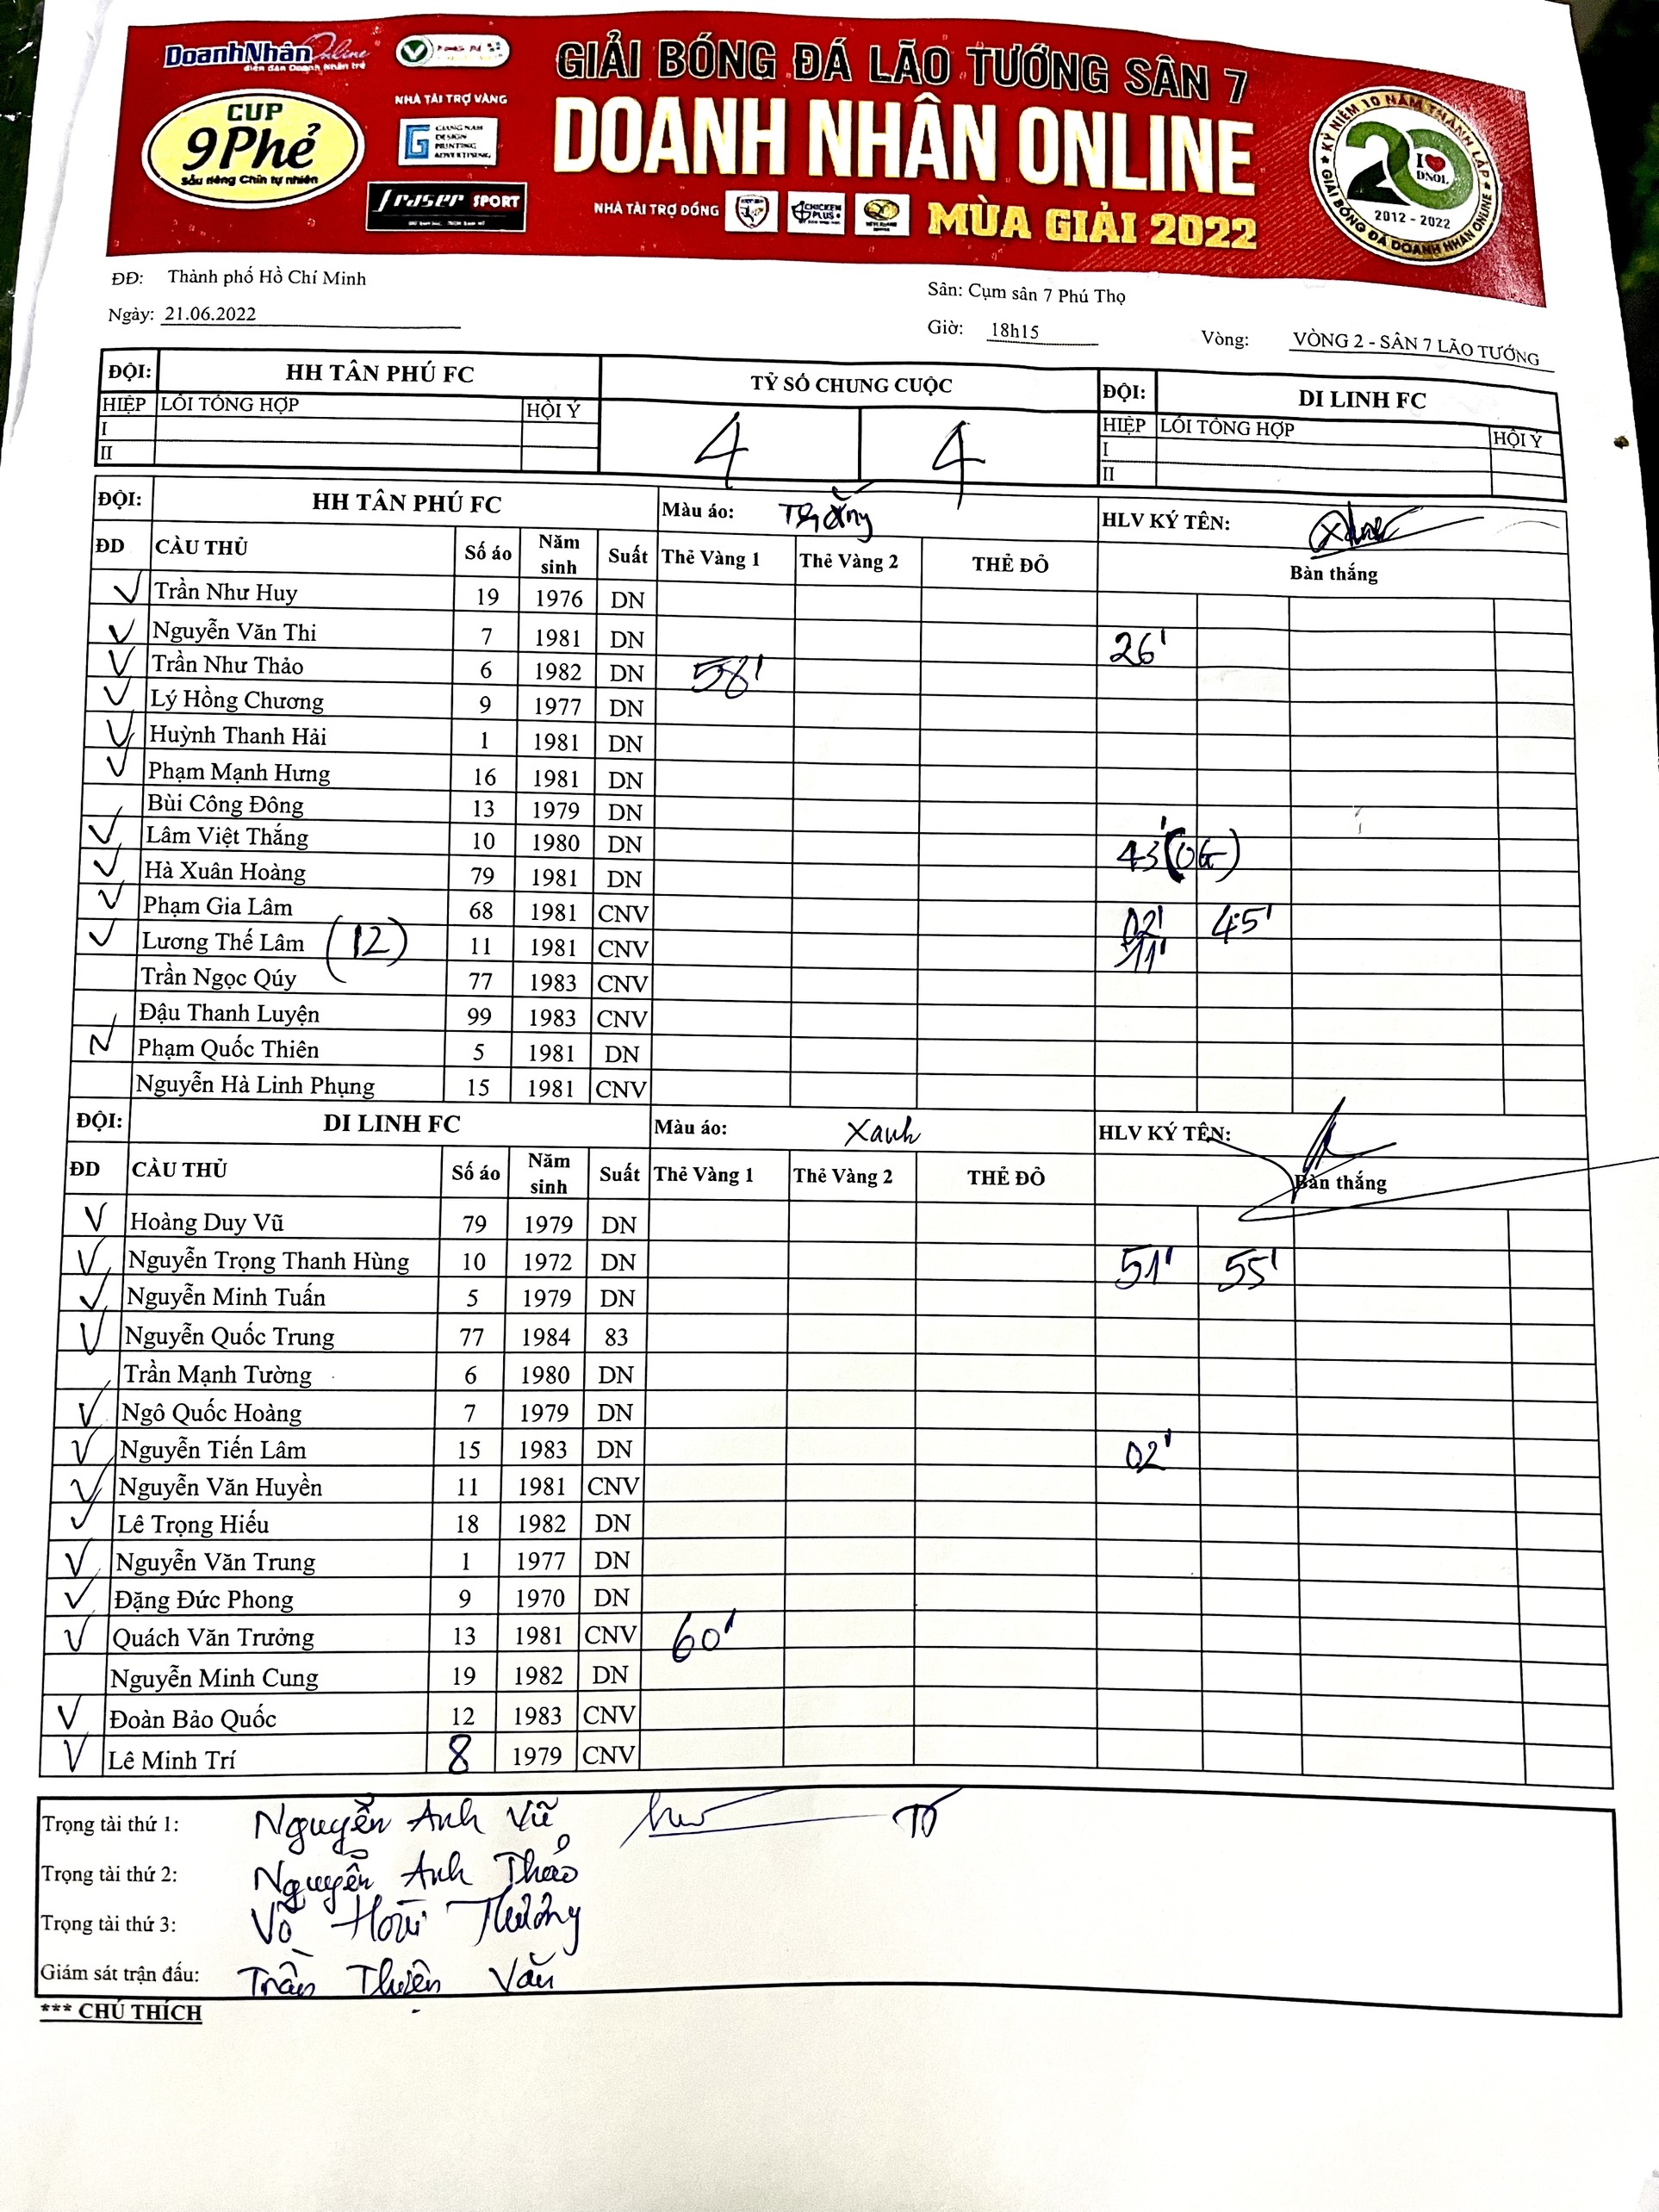 DoanhNhân Online
diễn đàn Doanh Nhân trẻ
CUP
9Phẻ
Sầu riêng Chín tự nhiên
NHÀ TÀI TRỢ VÀNG
GIANG NAM
DESIGN
PRINTING
ADVERTISING
fraser SPORT
GIẢI BÓNG ĐÁ LÃO TƯỚNG SÂN 7
DOANH NHÂN ONLINE
NHÀ TÀI TRỢ ĐỒNG
CHICKEN
PLUS
MÙA GIẢI 2022
KỶ NIỆM 10 NĂM THÀNH LẬP
I DNOL
2012 - 2022
GIẢI BÓNG ĐÁ DOANH NHÂN ONLINE
ĐĐ: Thành phố Hồ Chí Minh
Sân: Cụm sân 7 Phú Thọ
Ngày: 21.06.2022
Giờ: 18h15
Vòng: VÒNG 2 - SÂN 7 LÃO TƯỚNG
ĐỘI: HH TÂN PHÚ FC TỶ SỐ CHUNG CUỘC ĐỘI: DI LINH FC
HIỆP LỖI TỔNG HỢP HỘI Ý 4 4 HIỆP LỖI TỔNG HỢP HỘI Ý
I I
II II
ĐỘI: HH TÂN PHÚ FC Màu áo: Trắng HLV KÝ TÊN:
ĐD CẦU THỦ Số áo Năm sinh Suất Thẻ Vàng 1 Thẻ Vàng 2 THẺ ĐỎ Bàn thắng
Trần Như Huy 19 1976 DN
Nguyễn Văn Thi 7 1981 DN 26'
Trần Như Thảo 6 1982 DN 58'
Lý Hồng Chương 9 1977 DN
Huỳnh Thanh Hải 1 1981 DN
Phạm Mạnh Hưng 16 1981 DN
Bùi Công Đông 13 1979 DN
Lâm Việt Thắng 10 1980 DN 43' (OG)
Hà Xuân Hoàng 79 1981 DN
Phạm Gia Lâm 68 1981 CNV 02' 45'
Lương Thế Lâm (12) 11 1981 CNV 11'
Trần Ngọc Qúy 77 1983 CNV
Đậu Thanh Luyện 99 1983 CNV
Phạm Quốc Thiên 5 1981 DN
Nguyễn Hà Linh Phụng 15 1981 CNV
ĐỘI: DI LINH FC Màu áo: Xanh HLV KÝ TÊN:
ĐD CẦU THỦ Số áo Năm sinh Suất Thẻ Vàng 1 Thẻ Vàng 2 THẺ ĐỎ Bàn thắng
Hoàng Duy Vũ 79 1979 DN
Nguyễn Trọng Thanh Hùng 10 1972 DN 51' 55'
Nguyễn Minh Tuấn 5 1979 DN
Nguyễn Quốc Trung 77 1984 83
Trần Mạnh Tường 6 1980 DN
Ngô Quốc Hoàng 7 1979 DN
Nguyễn Tiến Lâm 15 1983 DN 02'
Nguyễn Văn Huyền 11 1981 CNV
Lê Trọng Hiếu 18 1982 DN
Nguyễn Văn Trung 1 1977 DN
Đặng Đức Phong 9 1970 DN
Quách Văn Trưởng 13 1981 CNV 60'
Nguyễn Minh Cung 19 1982 DN
Đoàn Bảo Quốc 12 1983 CNV
Lê Minh Trí 8 1979 CNV
Trọng tài thứ 1: Nguyễn Anh Vũ
Trọng tài thứ 2: Nguyễn Anh Thảo
Trọng tài thứ 3: Võ Hoài Thương
Giám sát trận đấu: Trần Thiện Văn
*** CHÚ THÍCH